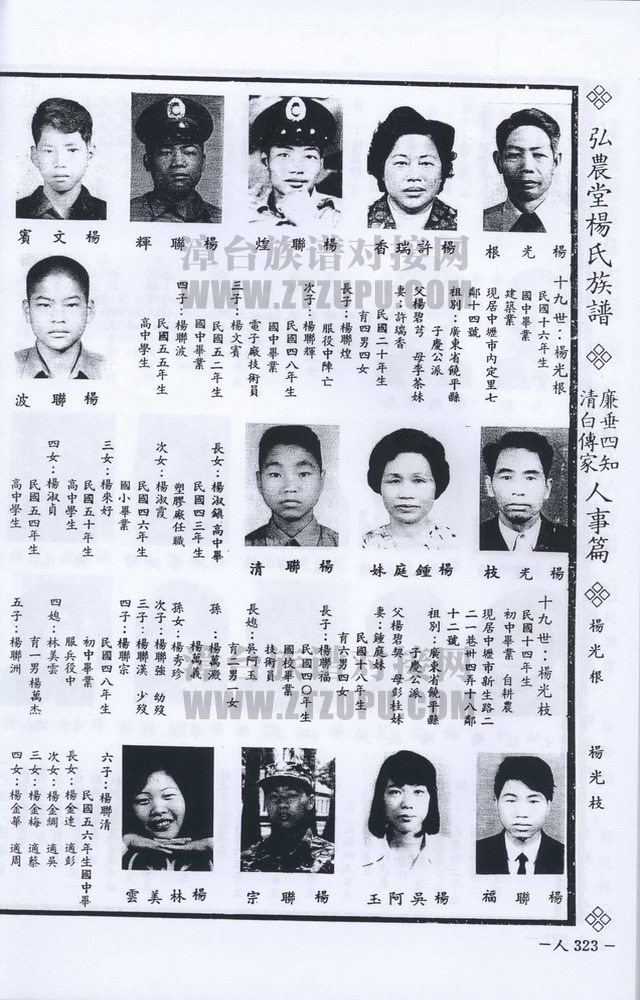 弘農堂楊氏族譜
廉垂四知
清白傳家
人事篇
楊光根
楊光枝
楊光根
楊許瑞香
楊聯煌
楊聯輝
楊文賓
十九世：楊光根
民國十六年生
國中畢業
建築業
現居中壢市內定里七
鄰十四號
祖別：廣東省饒平縣
子慶公派
父楊碧芎 母李茶妹
妻：許瑞香
民國二十年生
育四男四女
長子：楊聯煌
服役中陣亡
次子：楊聯輝
民國四八年生
國中畢業
電子廠技術員
三子：楊文賓
民國五二年生
國中畢業
四子：楊聯波
民國五五年生
高中學生
楊聯波
楊光枝
楊鍾庭妹
楊聯清
長女：楊淑鎮 高中畢
民國四三年生
塑膠廠任職
次女：楊淑霞
民國四六年生
國小畢業
三女：楊來好
民國五十年生
高中學生
四女：楊淑貞
民國五四年生
高中學生
十九世：楊光枝
民國十四年生
初中畢業 自耕農
現居中壢市新生路二
二一巷卅四弄十八鄰
十二號
祖別：廣東省饒平縣
子慶公派
父楊碧契 母彭桂妹
妻：鍾庭妹
民國十八年生
育六男四女
長子：楊聯福
民國四〇年生
國校畢業
技術員
長媳：吳阿玉
育二男一女
孫：楊萬澱
楊萬義
孫女：楊秀珍
次子：楊聯強 幼歿
三子：楊聯漢 少歿
四子：楊聯宗
民國四八年生
初中畢業
服兵役中
四媳：林美雲
育一男楊萬杰
五子：楊聯洲
楊聯福
楊吳阿玉
楊聯宗
楊林美雲
六子：楊聯清
民國五六年生國中畢
長女：楊金連 適彭
次女：楊金綢 適吳
三女：楊金梅 適蔡
四女：楊金華 適周
－人 323－
漳台族谱对接网
WWW.ZTZUPU.COM
漳台族谱对接网
WWW.ZTZUPU.COM